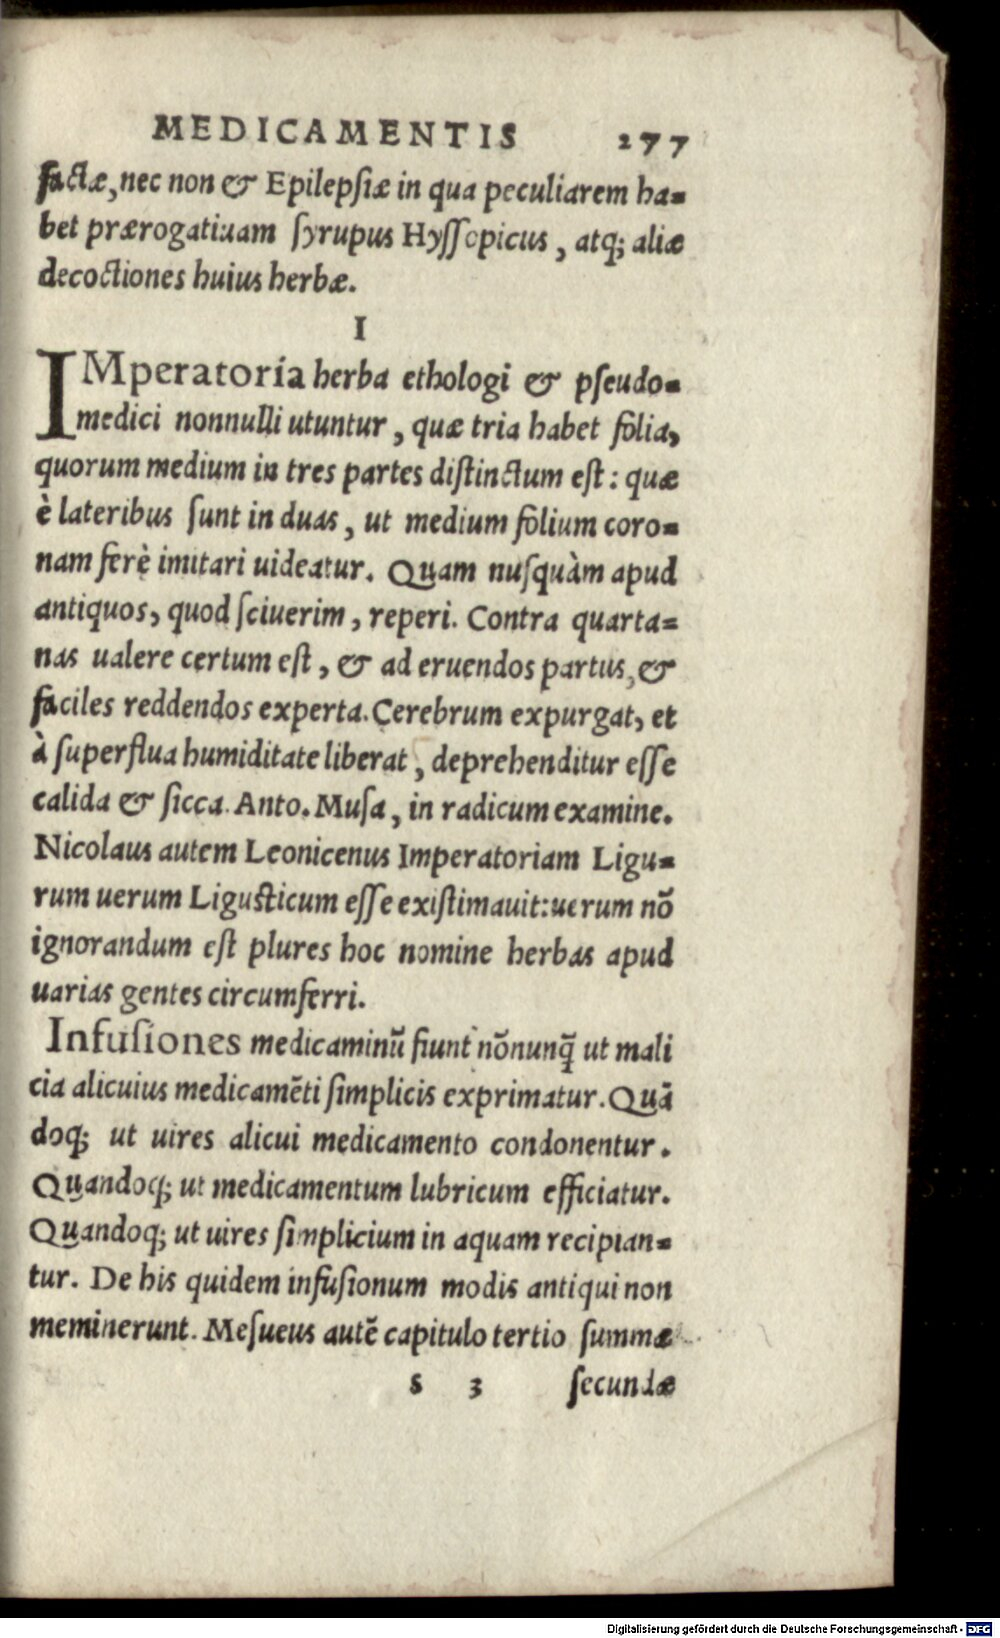 MEDICAMENTIS 277
factæ, nec non & Epilepsiæ in qua peculiarem ha-
bet prærogatiuam ſyrupus Hyſſopicus, atq; aliæ
decoctiones huius herbæ.
I
IMperatoria herba ethologi & pſeudo-
medici nonnulli utuntur, quæ tria habet folia,
quorum medium in tres partes diſtinctum eſt: quæ
è lateribus ſunt in duas, ut medium folium coro-
nam ferè imitari uideatur. Quam nuſquàm apud
antiquos, quod ſciuerim, reperi. Contra quarta-
nas ualere certum eſt, & ad eruendos partus, &
faciles reddendos experta. Cerebrum expurgat, et
à ſuperflua humiditate liberat, deprehenditur eſſe
calida & ſicca. Anto. Muſa, in radicum examine.
Nicolaus autem Leonicenus Imperatoriam Ligu-
rum uerum Liguſticum eſſe exiſtimauit: uerum nõ
ignorandum eſt plures hoc nomine herbas apud
uarias gentes circumferri.
Infuſiones medicaminũ fiunt nõnunq̃ ut mali
cia alicuius medicamẽti ſimplicis exprimatur. Quã
doq; ut uires alicui medicamento condonentur.
Quandoq; ut medicamentum lubricum efficiatur.
Quandoq; ut uires ſimplicium in aquam recipian-
tur. De his quidem infuſionum modis antiqui non
meminerunt. Meſueus autẽ capitulo tertio ſummæ
s 3 ſecundæ
Digitalisierung gefördert durch die Deutsche Forschungsgemeinschaft - DFG